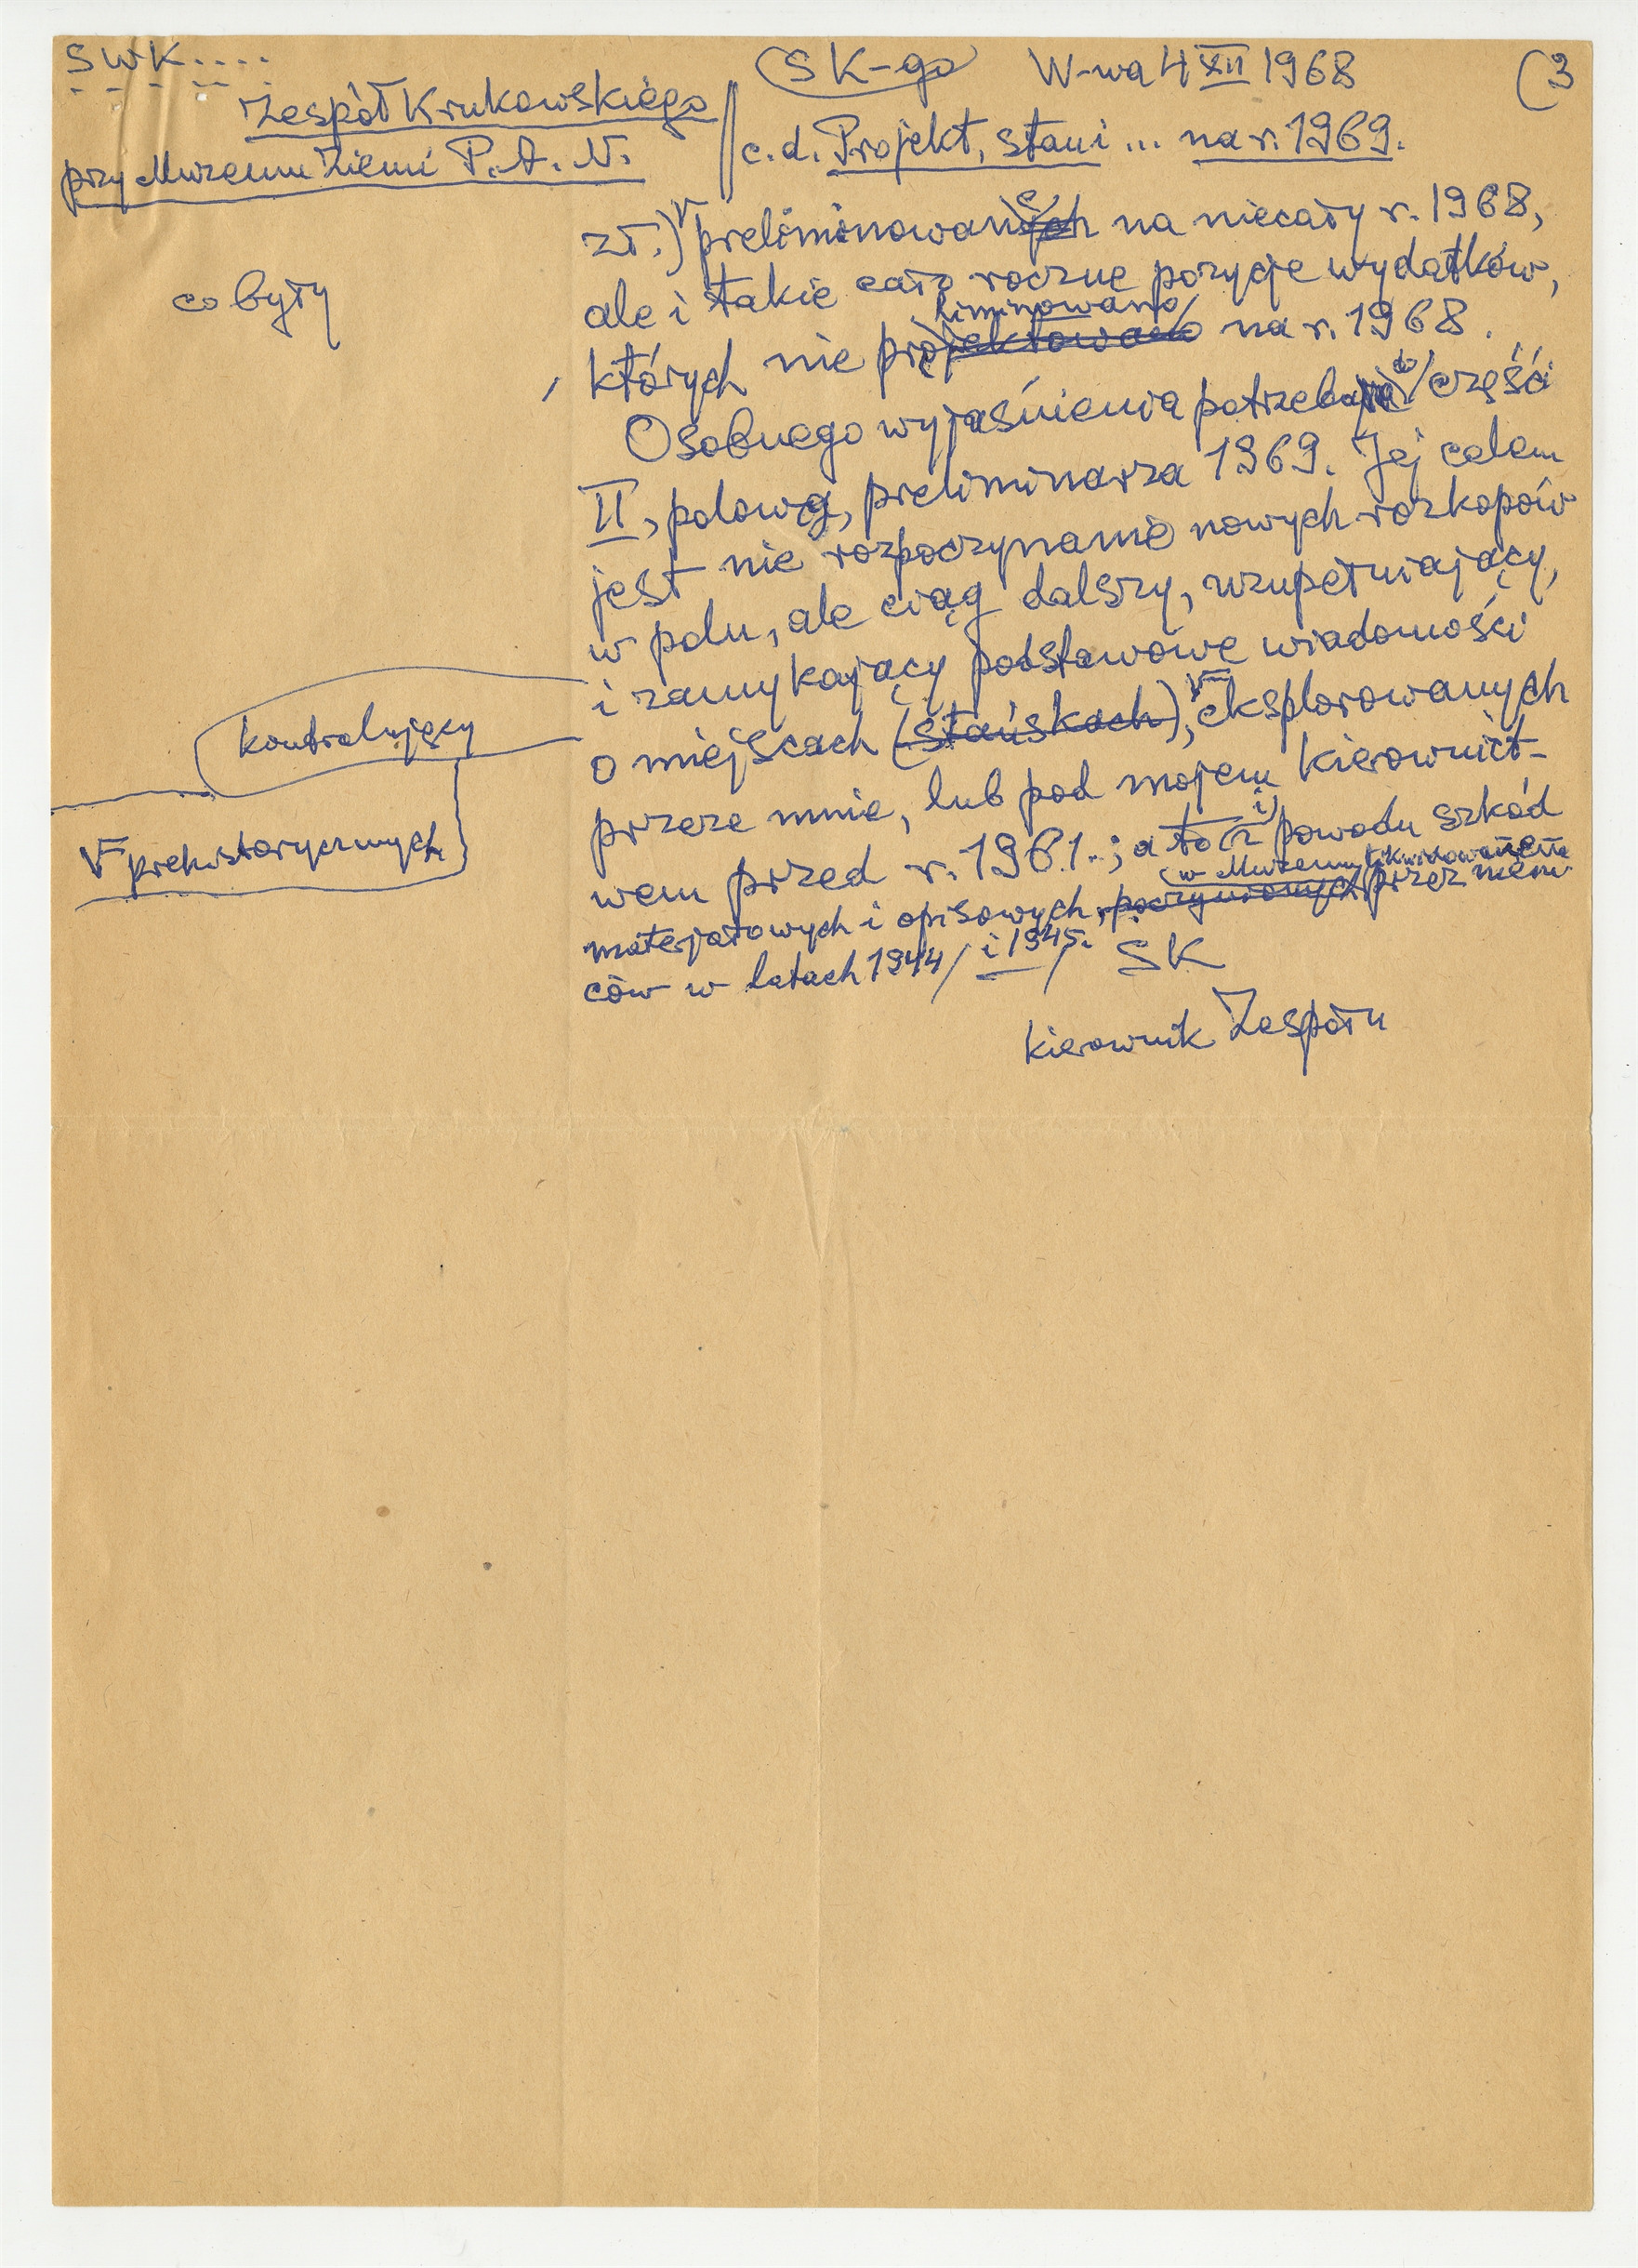 SWK....
SK-go W-wa 4 XII 1968 (3
Zespół Krukowskiego
przy Muzeum Ziemi P.A.N.
c.d. Projekt, stawi... na r. 1969.
co były
zł.) preliminowane na niecały r. 1968,
ale i takie cało roczne pozycje wydatków,
liminowano
których nie projektowano na r. 1968.
Osobnego wyjaśnienia potrzebuje część
II, polowa, preliminarza 1969. Jej celem
jest nie rozpoczynanie nowych rozkopów
w polu, ale ciąg dalszy, uzupełniający,
i zamykający podstawowe wiadomości
kontrolujący
o miejscach (stańskach), eksplorowanych
przeze mnie, lub pod mojem kierownict-
V prehistorycznych
wem przed r. 1961.; a to i z powodu szkód
w Muzeum
materjałowych i opisowych, poczynionych przez niem
ców w latach 1944 / i 1945. / SK
kierownik Zespołu